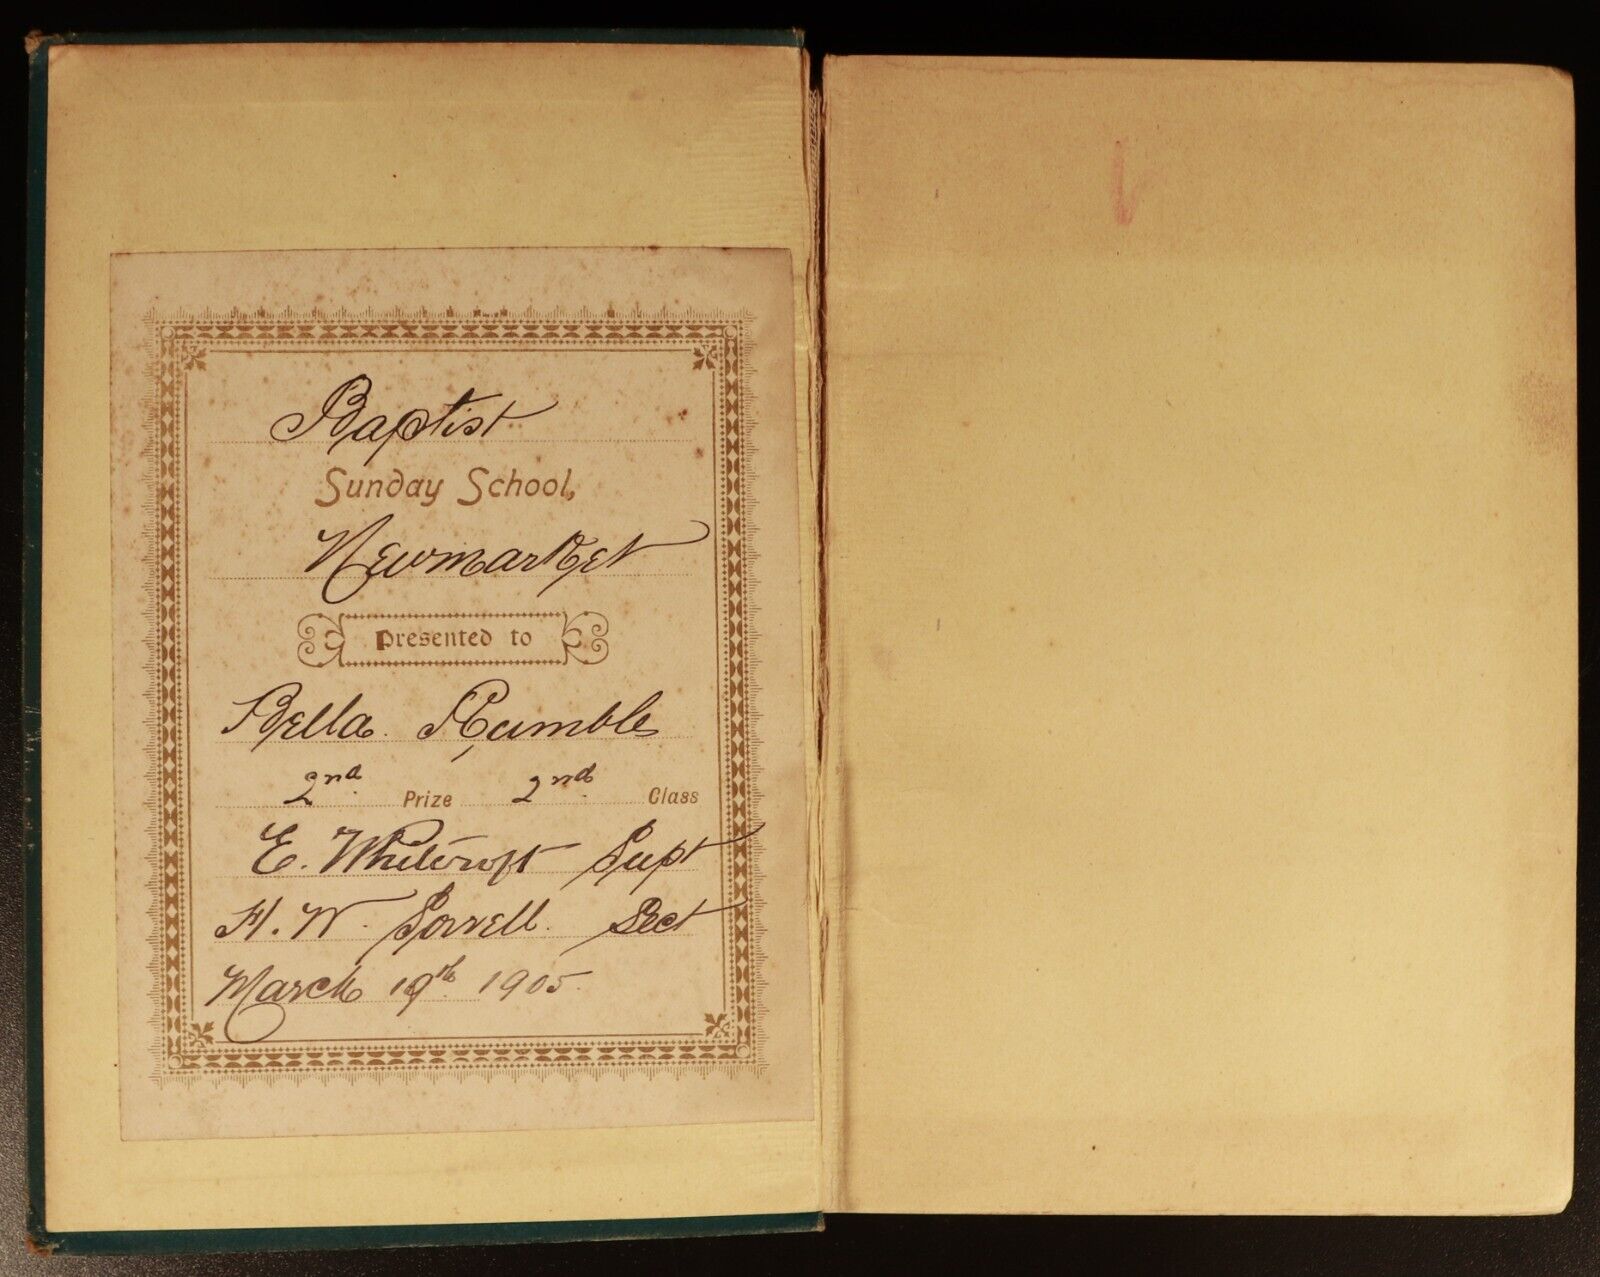 Baptist
Sunday School,
Newmarket
Presented to
Bella Rumble
2nd Prize 2nd Class
E. Whitcroft Supt
H. W. Sorrell. Sect
March 19th 1905.